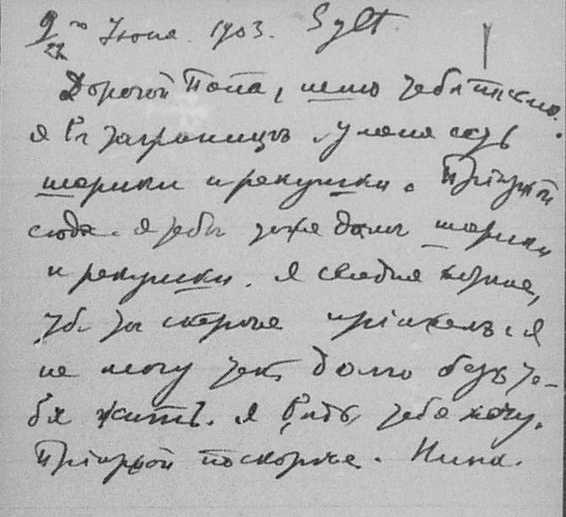 9/22го Июня 1903. Sylt
Дорогой Папа, шлю тебѣ письмо.
я въ заграницѣ. у меня есть
шарики и ракушки. Пріѣзжай
сюда. я тебѣ тоже дамъ шарики
и ракушки. Я сегодня
чтобъ ты скорѣе пріѣхалъ. я
не могу такъ долго безъ те-
бя жить. Я видѣть тебя хочу.
Пріѣзжай поскорѣе. Нина.